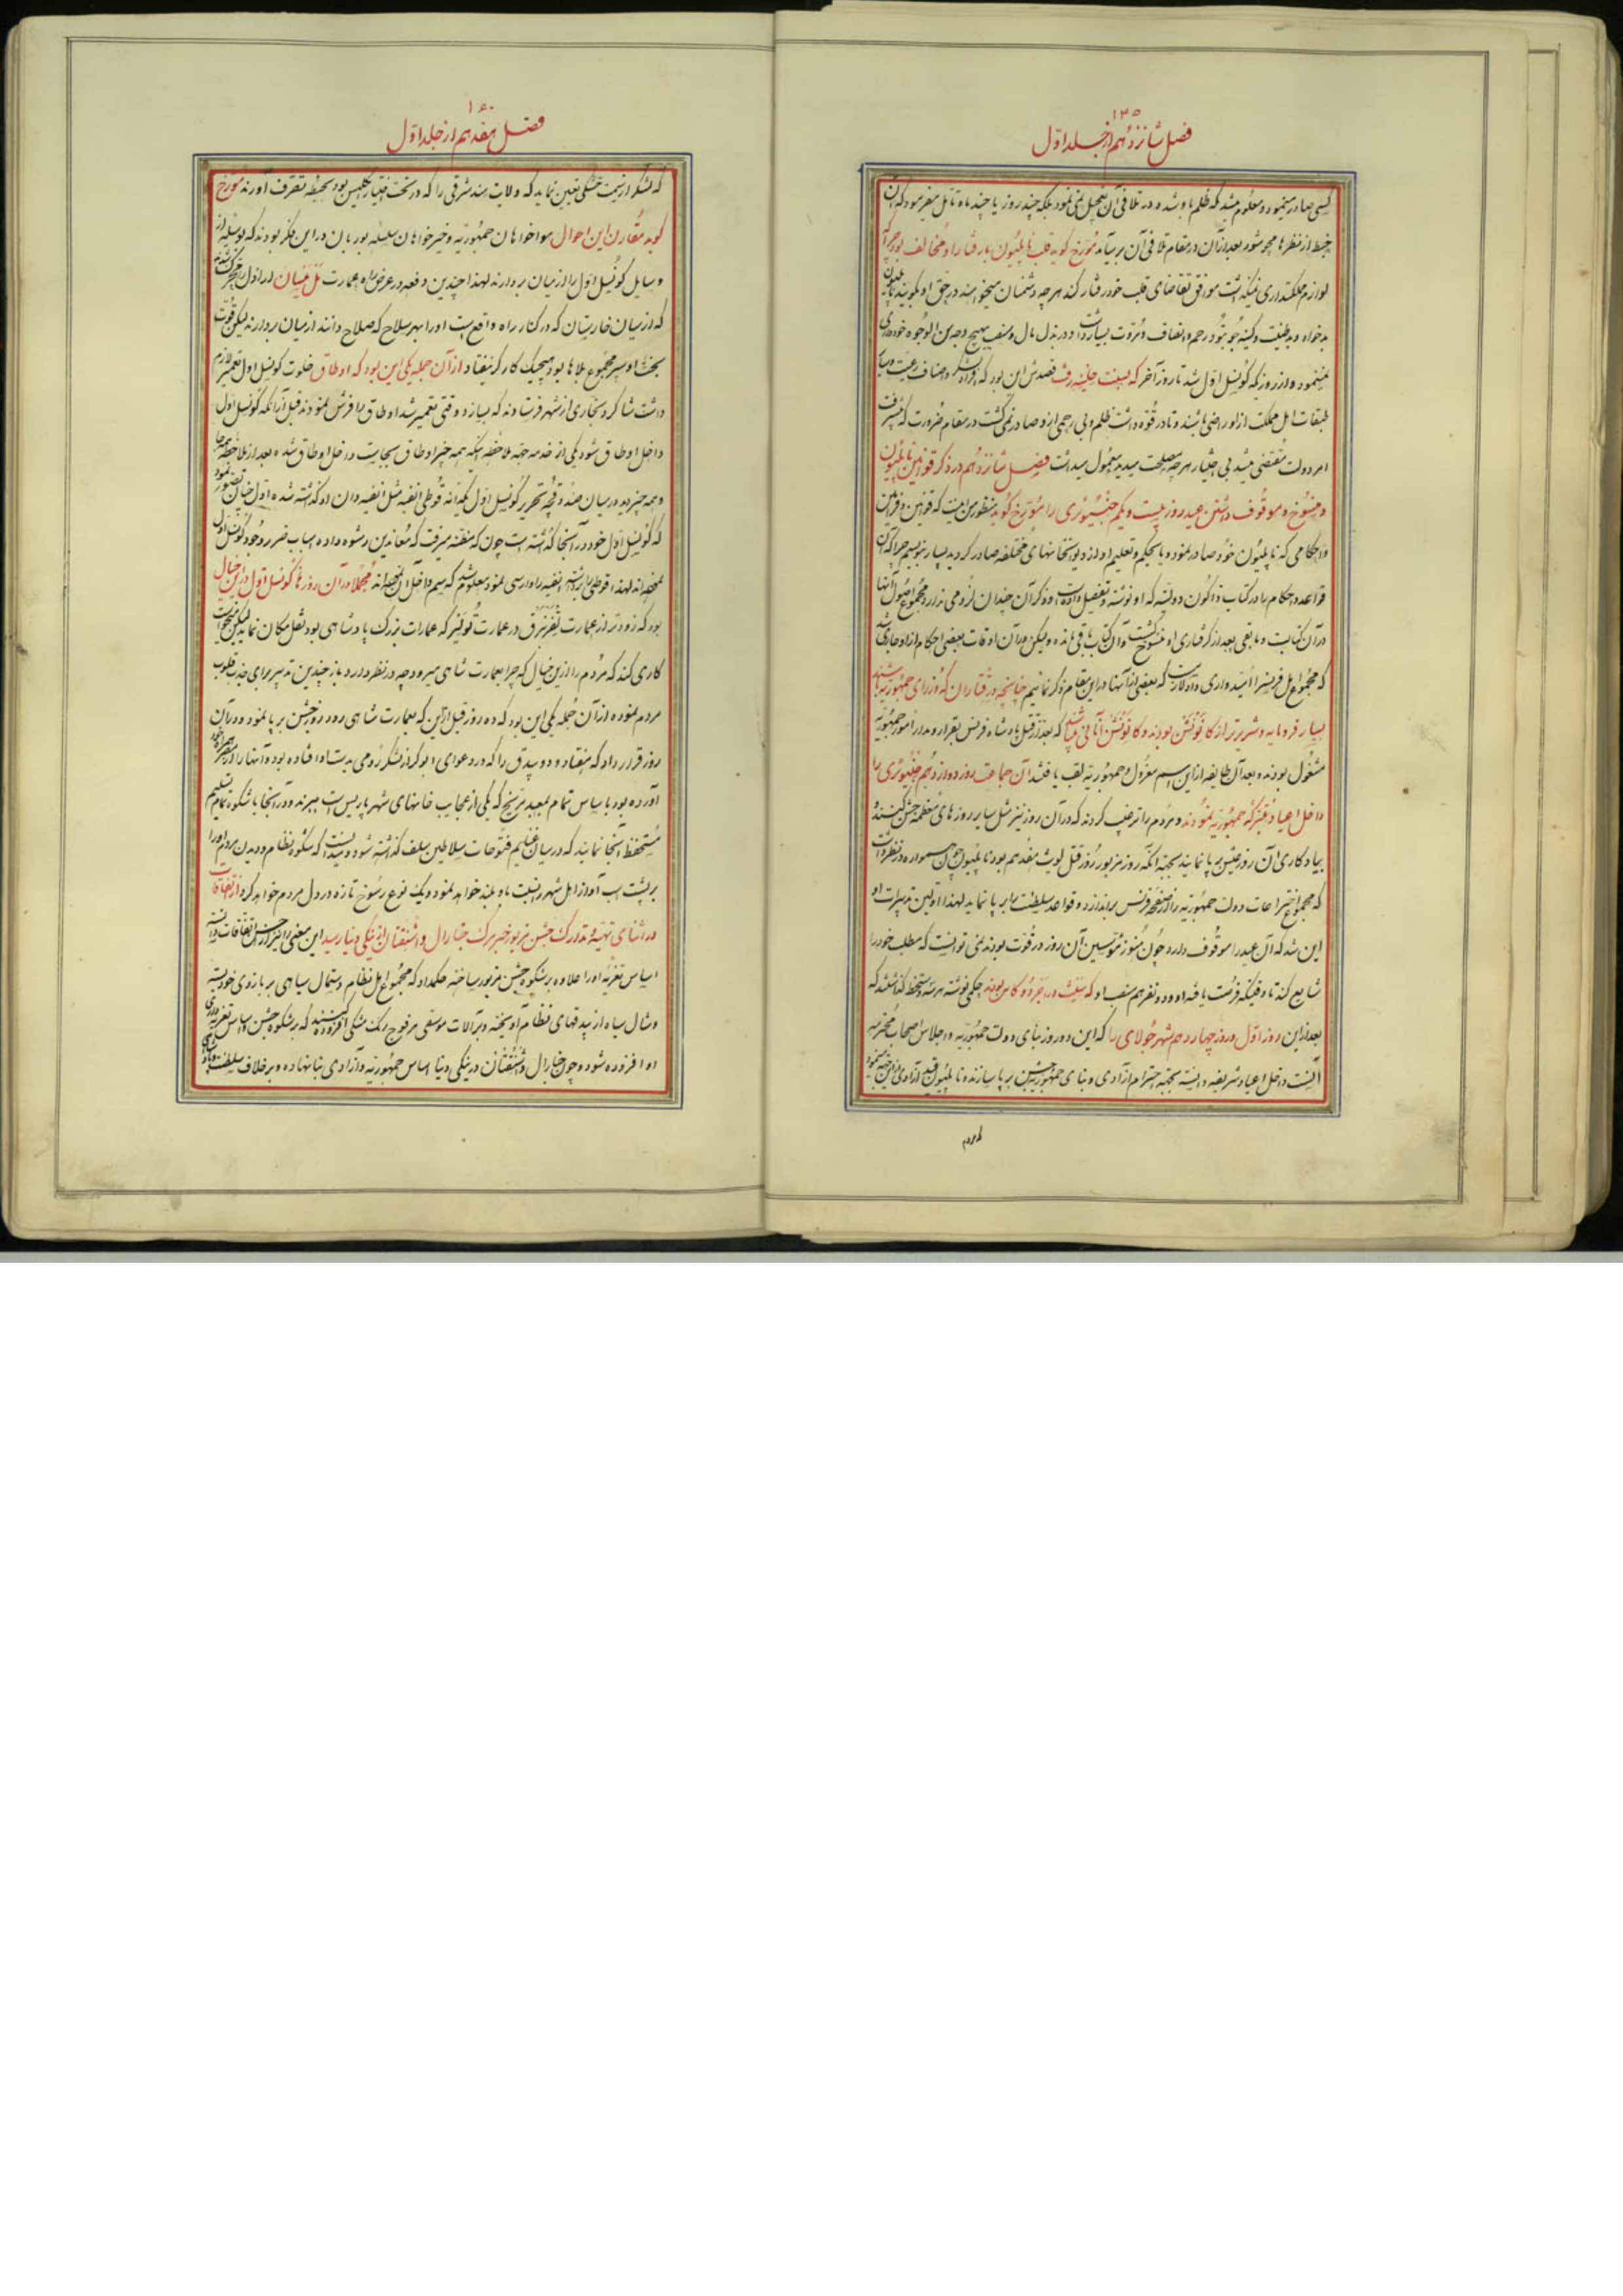 ۱۴۵
فصل شانزدهم از جلد اول
کسی صادر مینمود و معلوم میشد که ظلم باو شده در تلافی آن تعجیل نمی نمود بلکه چند روز یا چند ماه تامل میفرمود که آن
از نظرها محو شود بعد از آن در مقام تلافی آن بر میآمد مورخ کوید قلب ناپلیون با رفتار او مخالف بود چرا که
لوازم مملکتداری نمیگذاشت موافق تقاضای قلب خود رفتار کند هر چه دشمنان میخواهند در حق او بگویند ناپلیون
بدخواه و بدطینت و کینه جو نبود رحم و انصاف و مروت بسیار داشت و در بذل مال و منصب بهیچ وجه من الوجوه خودداری
نمینمود و از روزیکه کونسل اول شد تا روز آخر که بسینت هلینه رفت قصدش این بود که افراد لشکر و اصناف رعیت و سایر
طبقات اهل مملکت از او راضی باشند و تا در قوه داشت ظلم و بی رحمی از او صادر نمی کشت در مقام ضرورت که پیشرفت
امر دولت مقتضی میشد بی اختیار هر چه مصلحت میدید معمول میداشت فصل شانزدهم در ذکر قوانین ناپلیون
و منسوخ و موقوف داشتن عید روز بیست و یکم جنیوری را مورخ کوید منظور من نیست که قوانین و فرامین
و احکامی که ناپلیون خود صادر نمود و یا بحکم و تعلیم او از دیوانخانهای مختلفه صادر کردید بسیار بنویسم چرا که آن
قواعد و احکام را در کتاب دولتیه که او نوشته و تفصیل داده است و ذکر آن چندان لزومی ندارد و مجموع اصول آنها
در آن کتابست و مابقی بعد از کرفتاری او منسوخ کشت و آن کتاب باقی مانده ولیکن در آن اوقات بعضی احکام از او جاری شد
که مجموع اهل فرانس را امیدواری داد لازمست که بعضی از آنها در این مقام ذکر نمائیم چنانچه
بسیار فرومایه و شریرتر از کانونشن بودند و کانونشن که بعد از قتل پادشاه فرانس بقرار و مدار امور جمهوریه
مشغول بودند و بعد آن طایفه از این اسم معزول و جمهوریه لقب یافتند آن جماعت روز دوازدهم جنیوری را
داخل اعیاد متبرکه جمهوریه نمودند و مردم را ترغیب کردند که در آن روز نیز مثل سایر روزهای معظمه جشن کنند و
بیادکاری آن روز عیش بر پا نمایند بجهة آنکه روز مزبور روز قتل لویث هفدهم بود ناپلیون چون همواره در نظر داشت
که مجموع اختراعات دولت جمهوریه را از صفحه فرانس براندازد و قواعد سلطنت را بر پا نماید لهذا اولین تدبیرات او
این شد که آن عید را موقوف دارد چون هنوز مؤسسین آن روز در قوت بودند نمی توانست که مطلب خود را
شایع کند تا وقتیکه فرصت یافته او و دو نفر هم منصب او که بودند حکمی نوشته مهر و دستخط کذاشتند که
بعد از این روز اول و روز چهاردهم شهر جولای را که این دو روز بنای دولت جمهوریه و اجلاس اصحاب محترمه
است داخل اعیاد شریفه دانسته بجهة احترام آزادی و بنای جمهوریه جشن بر پا سازند و ناپلیون
۱۵۰
فصل هفدهم از جلد اول
که لشکر از سمت خشکی تعیین نماید که ولایت هند شرقی را که در تحت اختیار انکلیس بود بحیطه تصرف آورند مورخ
کوید مقارن این احوال هواخواهان جمهوریه و خیرخواهان سلسله بوربان در این فکر بودند که بوسیله از
وسایل کونسل اول را از میان بردارند لهذا چندین دفعه در عرض راه عمارت
که از میان خارستان که در کنار راه واقع است او را بهر سلاح که صلاح دانند از میان بردارند لیکن قوت
بخت او سپر مجموع بلاها بود هیچیک کارکر نیفتاد از آن جمله یکی این بود که اوطاق خلوت کونسل اول تعمیر لازم
داشت شاکرد نجاری از شهر فرستادند که بسازد وقتی تعمیر شد اوطاق را فرش نمودند قبل از آنکه کونسل اول
داخل اوطاق شود یکی از خدمه بجهة ملاحظه اینکه همه چیز اوطاق بجاست داخل اوطاق شده بعد از ملاحظه همه جا
و همه چیز دید در میان صندوقچه تحریر کونسل اول یکدانه قوطی انفیه مثل انفیه دان او کذاشته شده اول خیال نمود
که کونسل اول خود در آنجا کذاشته است چون که مظنه میرفت که معاندین رشوه داده اسباب ضرر وجود کونسل اول
شده اند لهذا قوطی را برداشته انفیه را وارسی نمود معلوم شد که سم داخل آن نموده اند مجملا در آن روزها کونسل اول در این خیال
بود که زودتر از عمارت در عمارت تولیر که عمارات بزرک پادشاهی بود نقل مکان نماید لیکن میخواست
کاری کند که مردم را از این خیال که چرا بعمارت شاهی میرود چه در نظر دارد باز چندین تدبیر برای جذب قلوب
مردم نموده از آن جمله یکی این بود که ده روز قبل از این که بعمارت شاهی رود روز جشن بر پا نمود و در آن
روز قرار داد که هفتاد و دو بیدق را که در دعوای ابوکر از لشکر رومی بدست او افتاده بود و آنها را از مصر همراه خود
آورده بود با سپاس تمام بمعبد که یکی از عجایب خانهای شهر پاریس است میبرند و در آنجا با شکوه تمام تسلیم
مستحفظ آنجا نمایند که در میان غنایم فتوحات سلاطین سلف کذاشته شود و میدانست که شکوه نظام و دیدن مردم او را
بر پشت اسب آواز اهل شهر را نسبت باو بلند خواهد نمود و یک نوع رسوخ تازه در دل مردم خواهد کرد از اتفاقات
در اثنای تهیه و تدارک جشن مزبور خبر مرک جنارال واشنقتان از ینکی دنیا رسید این معنی را نیز از حسن اتفاقات دانسته
اساس تعزیه او را علاوه بر شکوه جشن مزبور ساخته حکم داد که مجموع اهل نظام دستمال سیاهی بر بازوی خود بسته
و شال سیاه از بیدقهای نظام آویخته و بر آلات موسیقی هر فوج رنک مشکی افزودند که بر شکوه جشن و اساس تعزیه داری
او افزوده شود و چون جنارال واشنقتان در ینکی دنیا اساس جمهوریه و آزادی بنا نهاده و بر خلاف سلطنت